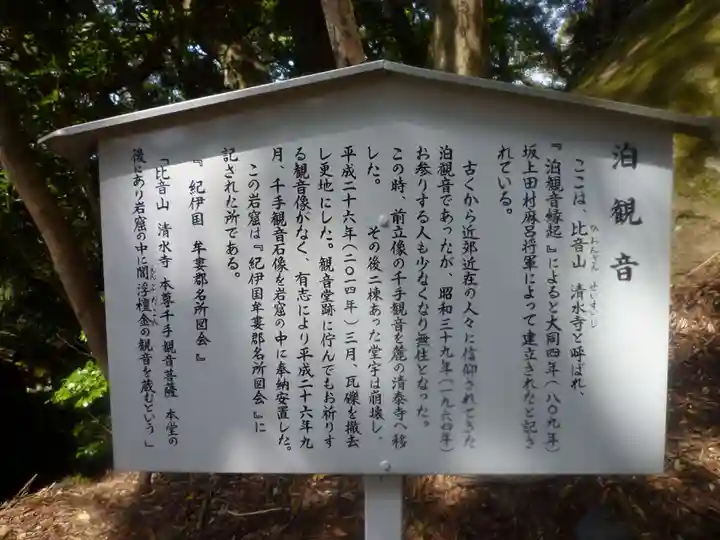 泊観音
ここは、比音山 清水寺と呼ばれ、
『泊観音縁起』によると大同四年(八〇九年)
坂上田村麻呂将軍によって建立されたと記さ
れている。
古くから近郊近在の人々に信仰されてきた
泊観音であったが、昭和三十九年(一九六四年)
お参りする人も少なくなり無住となった。
この時、前立像の千手観音を麓の清泰寺へ移
した。 その後二棟あった堂宇は崩壊し、
平成二十六年(二〇一四年)三月、瓦礫を撤去
し更地にした。観音堂跡に佇んでもお祈りす
る観音像がなく、有志により平成二十六年九
月、千手観音石像を岩窟の中に奉納安置した。
この岩窟は『紀伊国牟婁郡名所図会』に
記された所である。
『 紀伊国 牟婁郡名所図会 』
「比音山 清水寺 本尊千手観音菩薩 本堂の
後にあり岩窟の中に閻浮檀金の観音を蔵むという」